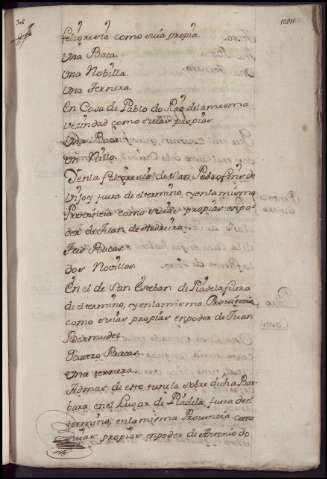 feligresia como suia propia
Una Baca
Una Nobilla
Una Ternera
En Casa de Pablo do Rio de la mesma
vecindad como suias propias
Una Baca
un
Yen la feligresia de San Pedro
fuera de el termino, y en la misma
Provincia como suias propias en po-
der de Juan de
Seis Bacas
dos Novillos
En el de San Esteban de Pladela fuera
de el termino, y en la misma Provincia
como suias propias en poder de Juan
Bermudez
Quatro Bacas
Una ternera
Ademas de esto tiene la sobre dicha Bar-
bara en el Lugar de Pladela fuera de el
termino, en la misma Provincia como
suias propias en poder de Antonio do